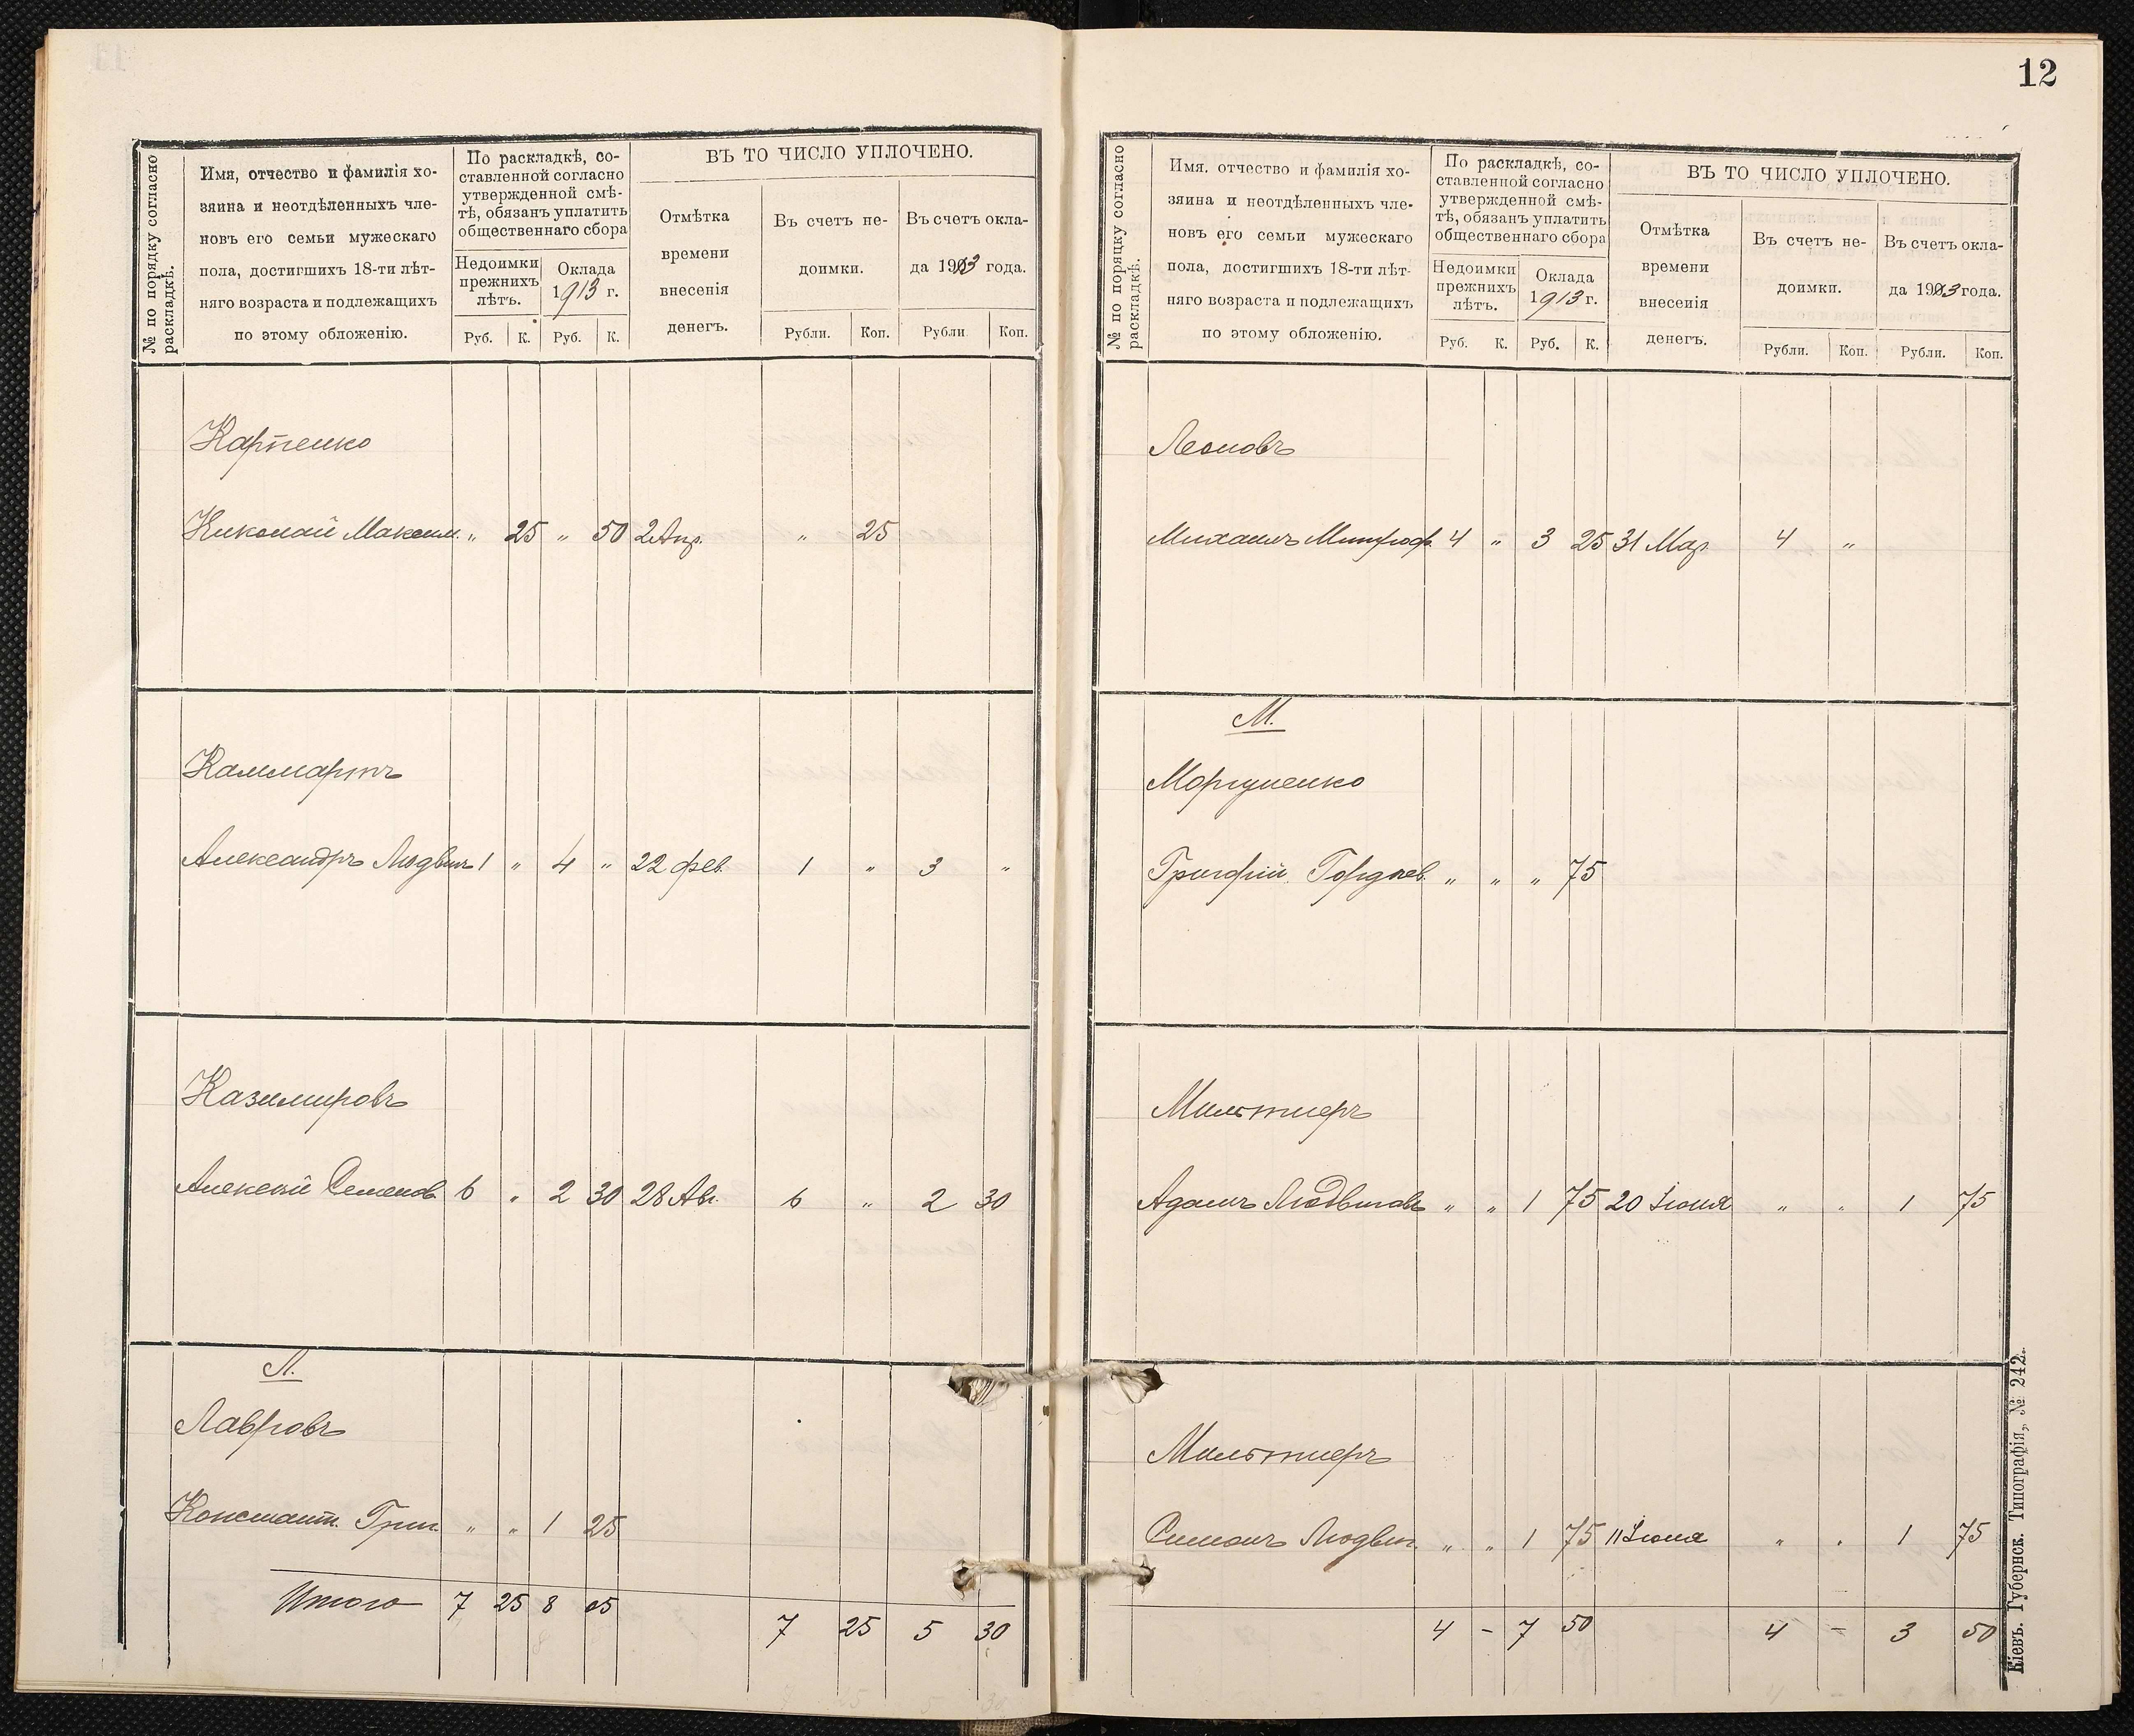 12
№ по порядку согласно раскладкѣ.
Имя, отчество и фамилія хо-
зяина и неотдѣленныхъ чле-
новъ его семьи мужескаго
пола, достигшихъ 18-ти лѣт-
няго возраста и подлежащихъ
по этому обложенію.
По раскладкѣ, со-
ставленной согласно
утвержденной смѣ-
тѣ, обязанъ уплатить
общественнаго сбора
Недоимки
прежнихъ
лѣтъ.
Оклада
1913 г.
Руб. К. Руб. К.
ВЪ ТО ЧИСЛО УПЛОЧЕНО.
Отмѣтка
времени
внесенія
денегъ.
Въ счетъ не-
доимки.
Въ счетъ окла-
да 1913 года.
Рубли. Коп. Рубли Коп.
Карпенко
Николай Максим. „ 25 „ 50 2 Апр. „ 25
Каммартъ
Александръ Людвиг 1 „ 4 „ 22 фев. 1 „ 3 „
Казимировъ
Алексѣй Семенов 6 „ 2 30 28 Авг. 6 „ 2 30
Л.
Лавровъ
Константин. Григ. „ „ 1 25
Итого 7 25 8 05
7 25 5 30
№ по порядку согласно раскладкѣ.
Имя. отчество и фамилія хо-
зяина и неотдѣленныхъ чле-
новъ его семьи мужескаго
пола, достигшихъ 18-ти лѣт-
няго возраста и подлежащихъ
по этому обложенію.
По раскладкѣ, со-
ставленной согласно
утвержденной смѣ-
тѣ, обязанъ уплатить
общественнаго сбора
Недоимки
прежнихъ
лѣтъ.
Оклада
1913 г.
Руб. К. Руб. К.
ВЪ ТО ЧИСЛО УПЛОЧЕНО.
Отмѣтка
времени
внесенія
денегъ.
Въ счетъ не-
доимки.
Въ счетъ окла-
да 1913 года.
Рубли. Коп. Рубли. Коп.
Леоновъ
Михаилъ Митроф. 4 „ 3 25 31 Мар. 4 „
М.
Моргуненко
Григорій Гордѣев. „ „ „ 75
Мильтнеръ
Адамъ Людвигов „ „ 1 75 20 Іюня „ „ 1 75
Мильтнеръ
Симонъ Людвиг. „ „ 1 75 11 Іюня „ „ 1 75
4 - 7 50 4 - 3 50
Кіевъ. Губернск. Типографія, № 242.